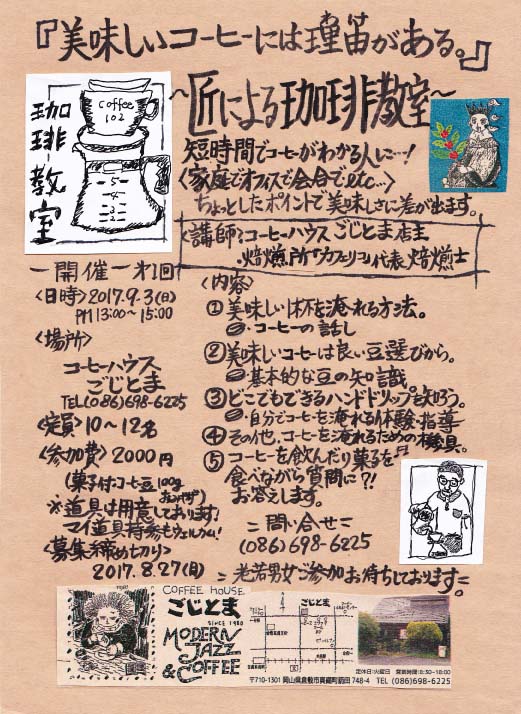 『美味しいコーヒーには理由がある。』
～匠による珈琲教室～
珈琲教室
coffee
102
短時間でコーヒーがわかる人に…!
〈家庭でオフィスで会合でetc…〉
ちょっとしたポイントで美味しさに差が出ます。
〈講師〉コーヒーハウス ごじとま店主
・焙煎所 代表 焙煎士
一開催一 才1回
〈日時〉2017.9.3(日)
PM 13:00～15:00
〈場所〉
コーヒーハウス
ごじとま
TEL(086)698-6225
〈定員〉10～12名
〈参加費〉2000円
(菓子付コーヒー豆100g
おみやげ)
※道具は用意しております!
マイ道具持参もウェルカム!
〈募集締め切り〉
2017.8.27(日)
〈内容〉
①美味しい1杯を淹れる方法。
・コーヒーの話し
②美味しいコーヒーは良い豆選びから。
・基本的な豆の知識。
③どこでもできるハンドドリップを知ろう。
・自分でコーヒーを淹れる体験・指導
④その他、コーヒーを淹れるための機具。
⑤コーヒーを飲んだり菓子を
食べながら質問に?!
お答えします。
＝問い合せ＝
(086)698-6225
＝老若男女ご参加お待ちしております＝
COFFEE HOUSE
ごじとま
SINCE 1980
MODERN
JAZZ
& COFFEE
ごじとま
定休日:火曜日 営業時間:8:30-18:00
〒710-1301 岡山県倉敷市真備町箭田 748-4 TEL (086)698-6225